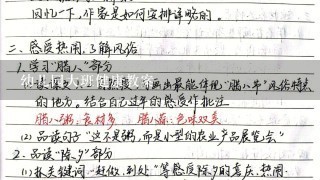 回忆一下，作家是如何安排详略的。
二、感受热闹，了解风俗
1. 学习“腊八”部分
画出最能体现“腊八节”风俗特点
的地方。结合自己过年的感受作批注
腊八粥：食材多 腊八蒜：色味双美
(2) 品读句子“这不是粥，而是小型的农业产品展览会”
2. 品读“除夕”部分
(1) 抓关键词“赶做、到处”等感受除夕的喜庆、热闹
幼儿园大班健康教案